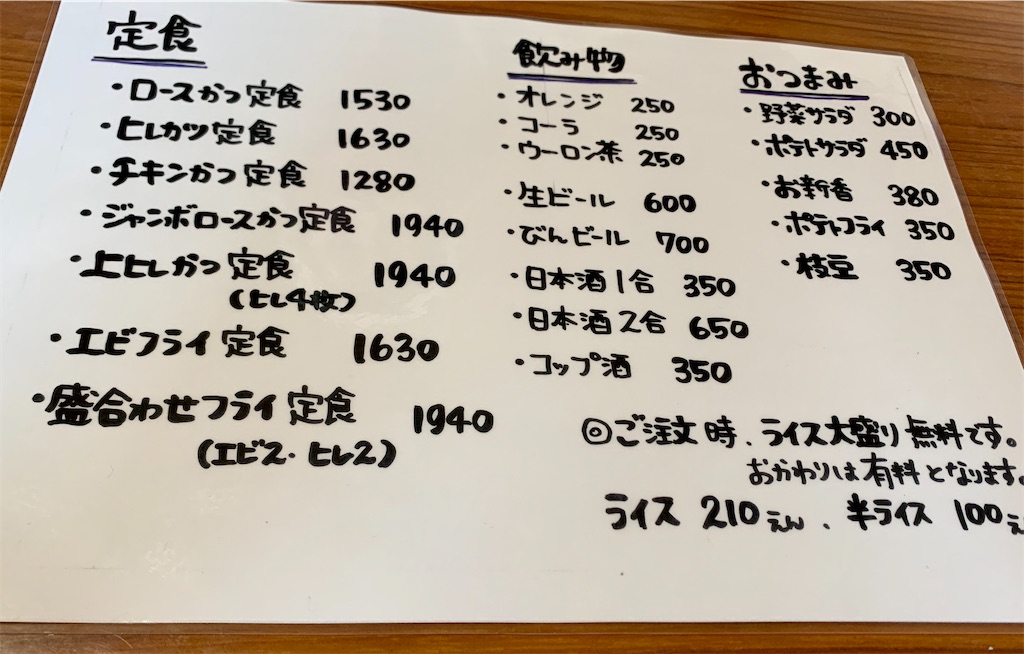 定食
・ロースかつ定食 1530
・ヒレカツ定食 1630
・チキンかつ定食 1280
・ジャンボロースかつ定食 1940
・上ヒレかつ定食 1940
(ヒレ4枚)
・エビフライ定食 1630
・盛合わせフライ定食 1940
(エビ2・ヒレ2)
飲み物
・オレンジ 250
・コーラ 250
・ウーロン茶 250
・生ビール 600
・びんビール 700
・日本酒1合 350
・日本酒2合 650
・コップ酒 350
おつまみ
・野菜サラダ 300
・ポテトサラダ 450
・お新香 380
・ポテトフライ 350
・枝豆 350
◎ご注文時、ライス大盛り無料です。
おかわりは有料となります。
ライス 210えん、半ライス 100え